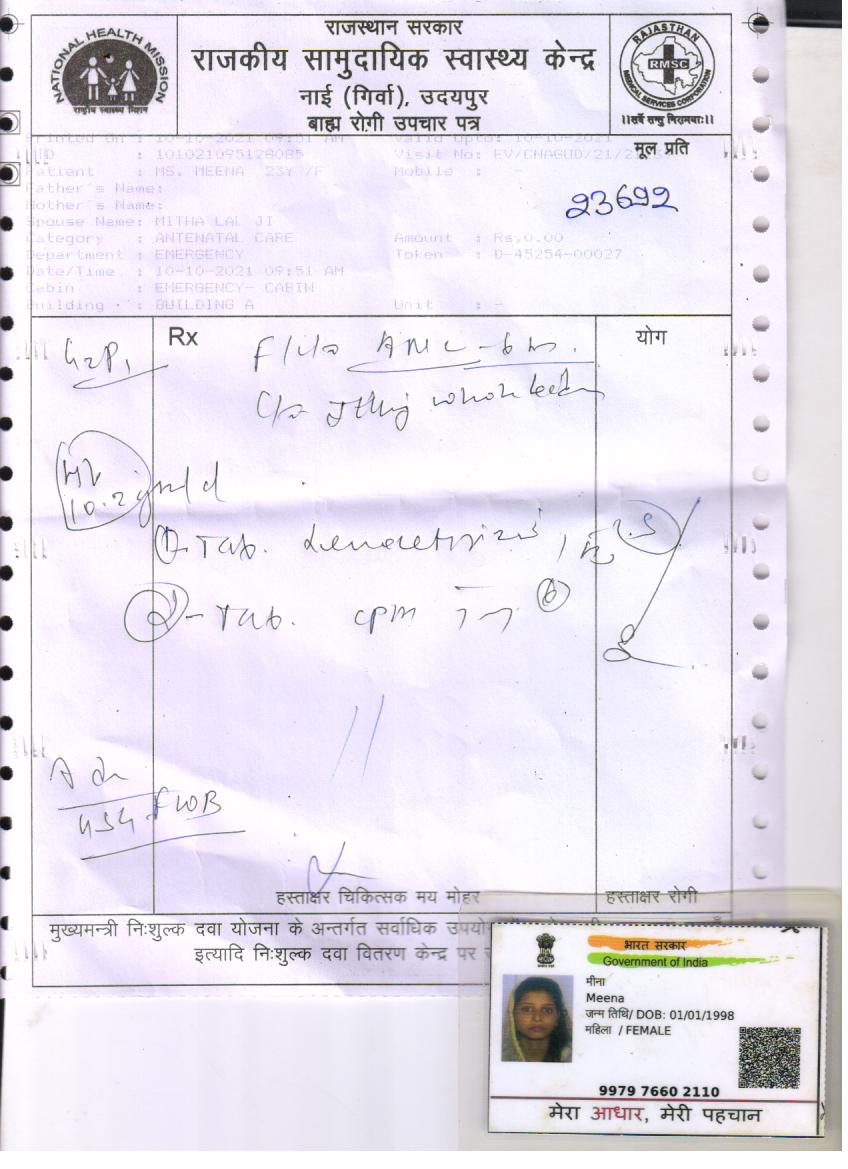 राजस्थान सरकार
राजकीय सामुदायिक स्वास्थ्य केन्द्र
नाई (गिर्वा), उदयपुर
बाह्य रोगी उपचार पत्र
NATIONAL HEALTH MISSION
राष्ट्रीय स्वास्थ्य मिशन
RAJASTHAN
RMSC
MEDICAL SERVICES CORPORATION
।।सर्वे सन्तु निरामयाः।।
मूल प्रति
Printed On : 10-10-2021 09:51 AM Valid Upto: 10-10-2021
: 101021095128085 Visit No: EV/CNAGUD/21/2
Patient : MS. MEENA 23Y /F Mobile : -
23692
Father's Name:
Mother's Name:
Spouse Name: MITHA LAL JI
Category : ANTENATAL CARE Amount : Rs.0.00
Department : EMERGENCY Token : D-45254-00027
Date/Time : 10-10-2021 09:51 AM
Cabin : EMERGENCY- CABIN
Building : BUILDING A Unit : -
Rx
योग
G2P1
C/o itching whole body
Hb
10.2 gm/d
①-Tab. Levocetirizine
②-Tab. CPM ⑥
Adv
USG FWB
हस्ताक्षर चिकित्सक मय मोहर
हस्ताक्षर रोगी
मुख्यमन्त्री निःशुल्क दवा योजना के अन्तर्गत सर्वाधिक
इत्यादि निःशुल्क दवा वितरण केन्द्र पर
भारत सरकार
Government of India
मीना
Meena
जन्म तिथि/ DOB: 01/01/1998
महिला / FEMALE
9979 7660 2110
मेरा आधार, मेरी पहचान